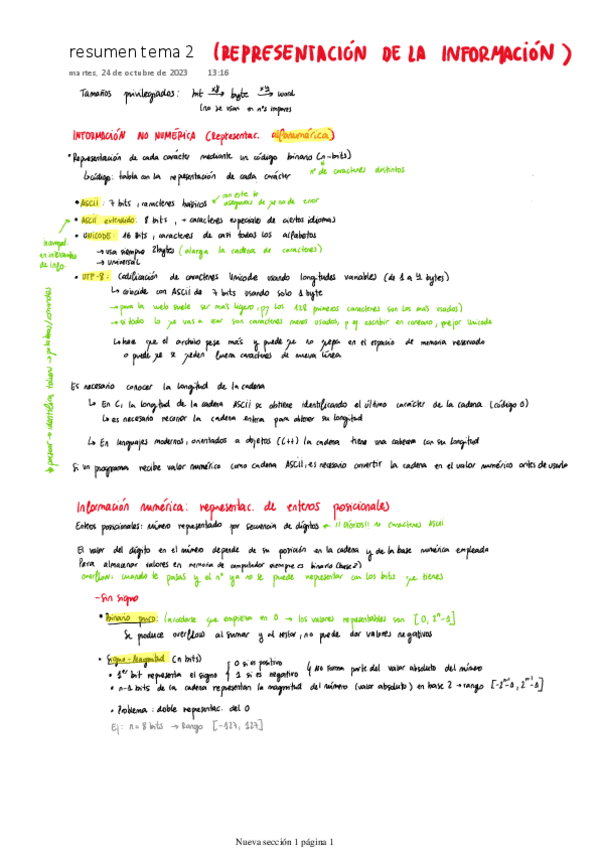 resumen tema 2 (REPRESENTACIÓN DE LA INFORMACIÓN)
martes, 24 de octubre de 2023 13:16
Tamaños privilegiados: bit x8→ byte → word
(no se usan en nºs impares
INFORMACIÓN NO NUMÉRICA (Representac. alfanumérica)
• Representación de cada carácter mediante un código binario (n-bits)
↳ código: tabla con la representación de cada carácter nº de caracteres distintos
• ASCII: 7 bits, caracteres básicos
• ASCII extendido: 8 bits, + caracteres especiales de ciertos idiomas
• UNICODE: 16 Bits, caracteres de casi todos los alfabetos
→ usa siempre 2bytes (alarga la cadena de caracteres)
→ universal
de info.
• UTF-8: Codificación de caracteres Unicode usando longitudes variables (de 1 a 4 bytes)
↳ coincide con ASCII de 7 bits usando solo 1 byte
→ para la web suele ser más ligero, pq los 128 primeros caracteres son los más usados)
→ si todo lo que vas a usar son caracteres menos usados, p ej. escribir en coreano, mejor Unicode
↳ hace que el archivo pese más y puede que no quepa en el espacio de memoria reservado
o puede que se queden fuera caracteres de nueva línea
→ parsear → identificar token → palabras/comandos
Es necesario conocer la longitud de la cadena
↳ En C, la longitud de la cadena ASCII se obtiene identificando el último carácter de la cadena (código 0)
↳ es necesario recorrer la cadena entera para obtener su longitud
↳ En lenguajes modernos, orientados a objetos (C++) la cadena tiene una cabecera con su longitud
Si un programa recibe valor numérico como cadena ASCII, es necesario convertir la cadena en el valor numérico antes de usarlo
Información numérica: representac. de enteros posicionales
Enteros posicionales: número representado por secuencia de dígitos → !! DÍGITOS!! no caracteres ASCII
El valor del dígito en el número depende de su posición en la cadena y de la base numérica empleada
Para almacenar valores en memoria de computador siempre es binario (base 2)
overflow: cuando te pasas y el nº ya no se puede representar con los bits que tienes
- Sin signo
• Binario puro: (acordarse que empieza en 0 → los valores representables son [0, 2ⁿ-1]
Se produce overflow al sumar y al restar, no puede dar valores negativos
• Signo-Magnitud (n bits)
• 1er bit representa el signo { 0 si es positivo
1 si es negativo } No forma parte del valor absoluto del número
• n-1 bits de la cadena representan la magnitud del número (valor absoluto) en base 2 → rango [-2ⁿ⁻¹-1, 2ⁿ⁻¹-1]
• Problema: doble representac. del 0
Ej: n = 8 bits → Rango [-127, 127]
Nueva sección 1 página 1